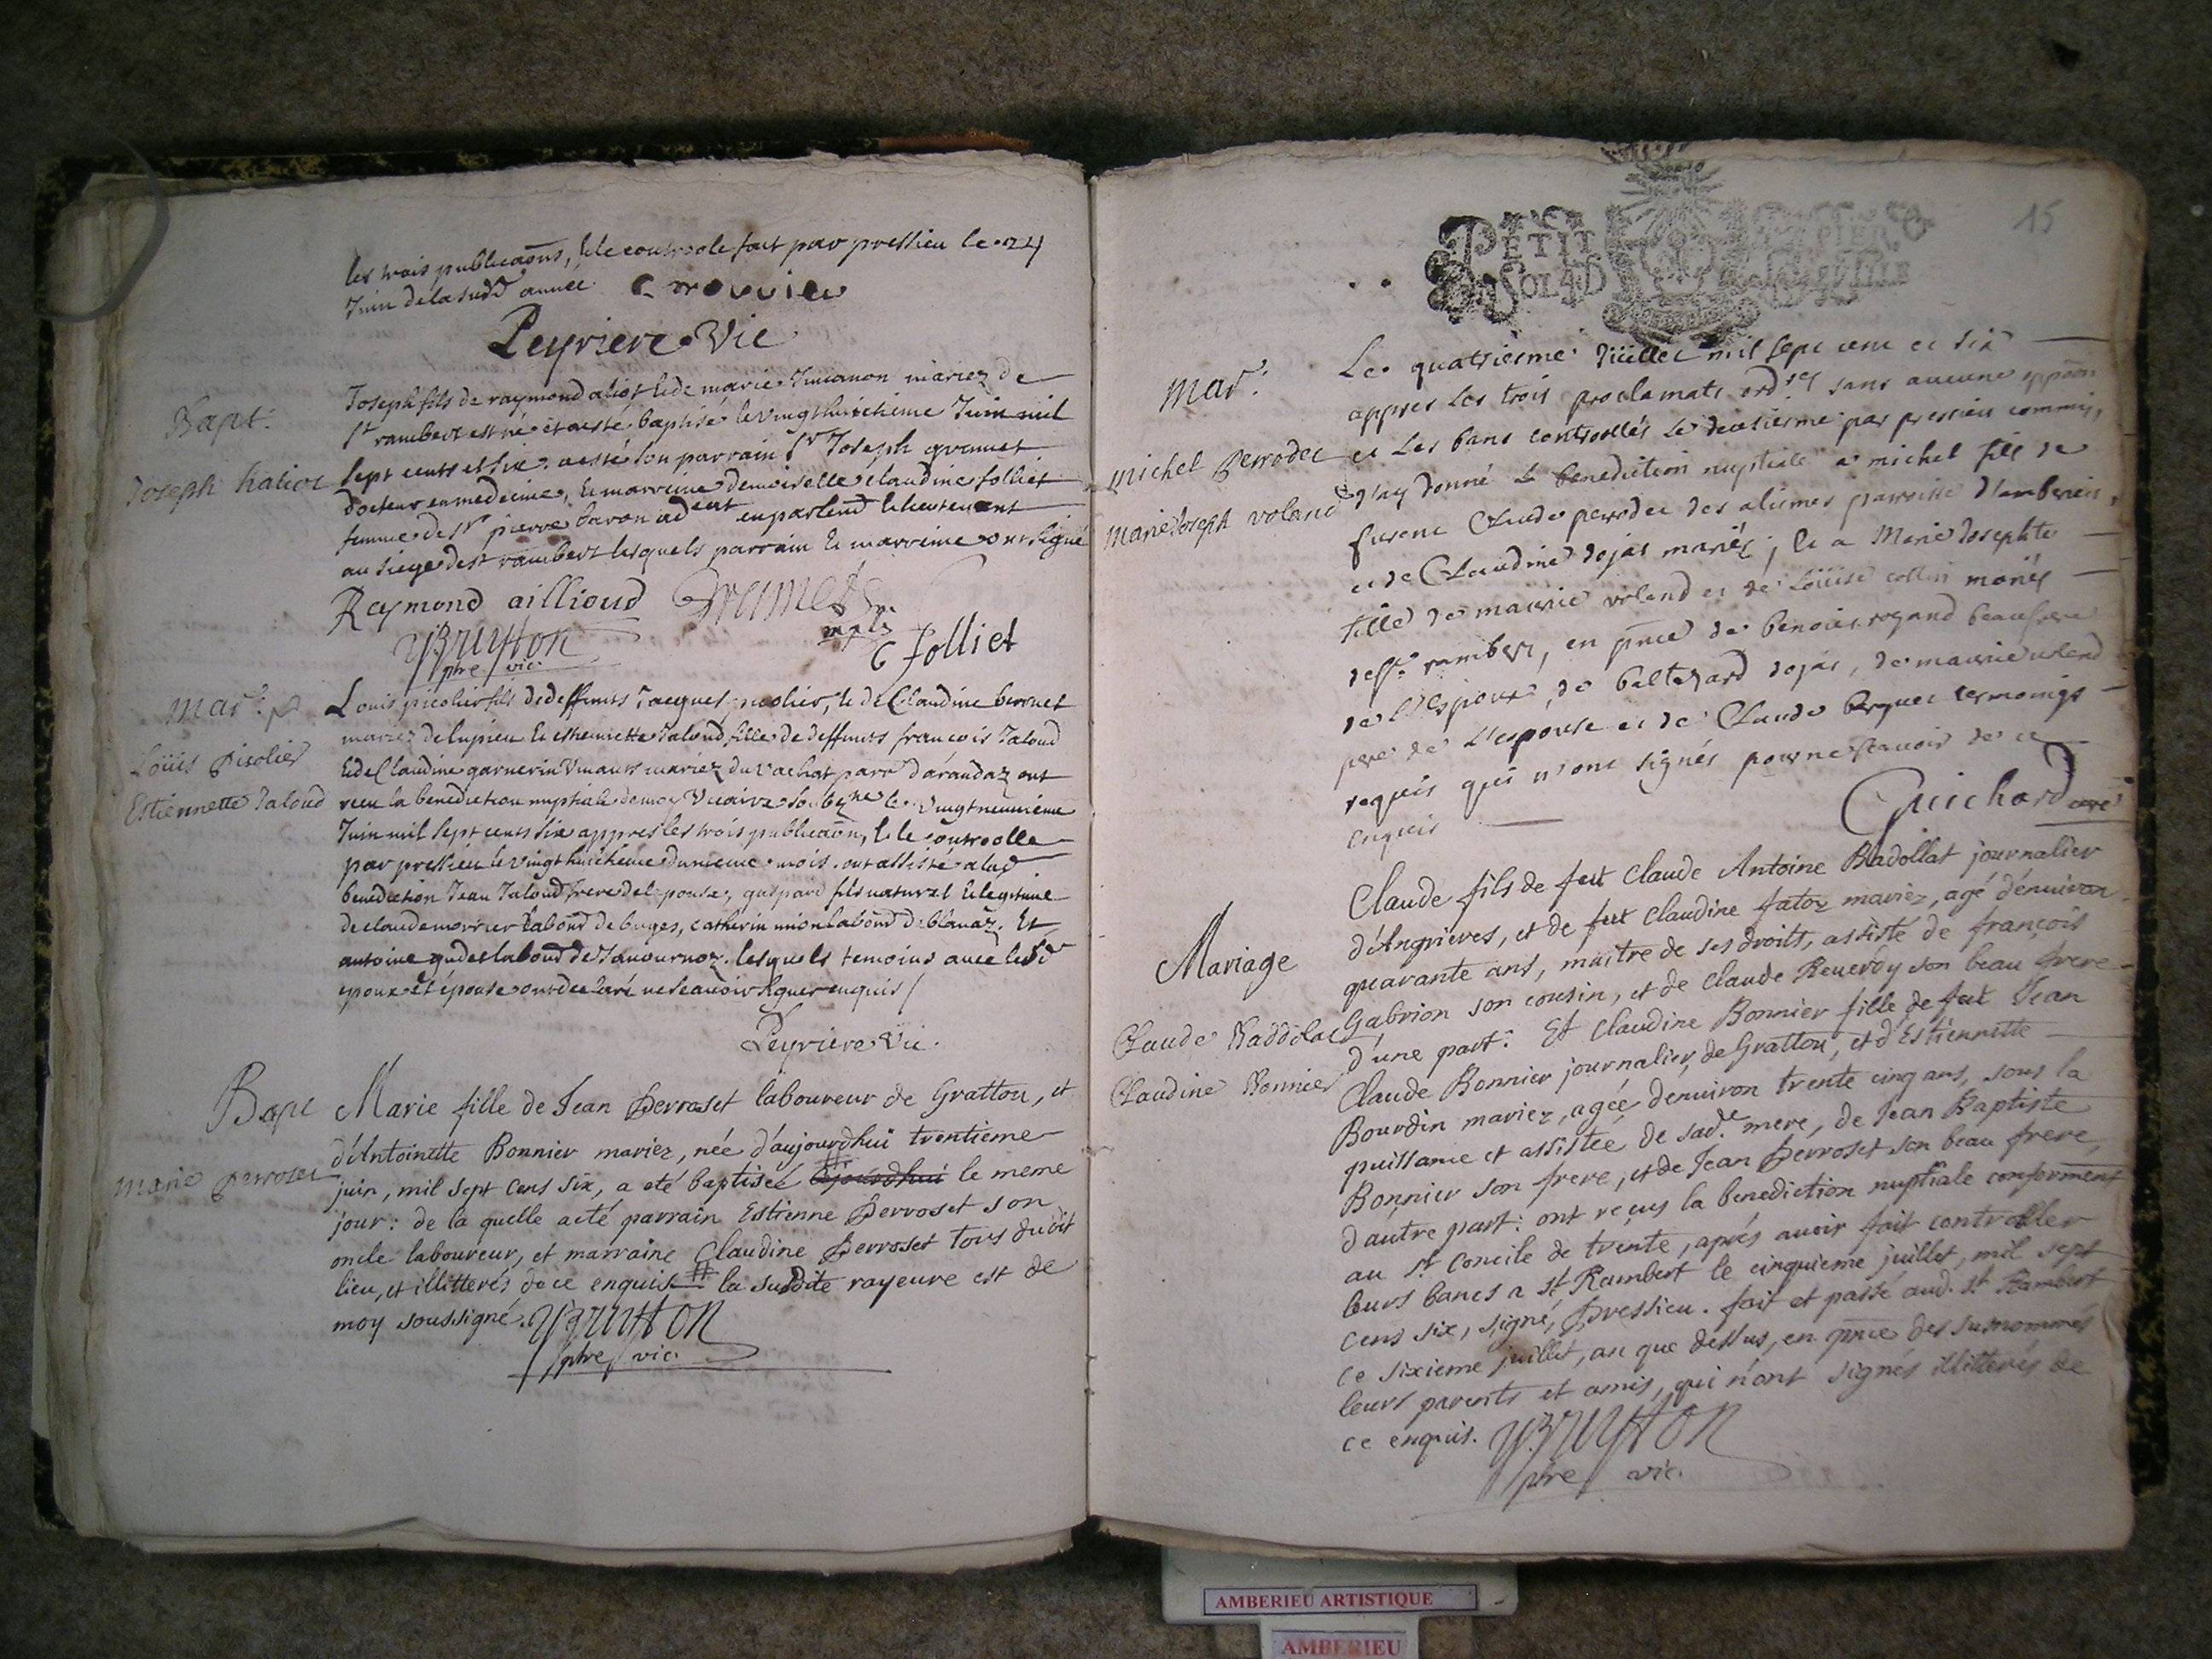 les trois publicaõns, & le controole fait par pressieu le 24
Juin de la sudᵉ année
Peyriere Vic
Bapt.
Joseph haliot
Joseph fils de raymond aliot & de marie mariez de
Sᵗ rambert est né et a esté baptisé le vingt huictieme Juin mil
sept cents et six. a esté son parrain Sʳ Joseph grumet
docteur en medecine, & marreine demoiselle claudine folliet
femme de Sʳ pierre baron en parlemᵗ lieutenant
au siege de st rambert lesquels parrain & marreine ont signé
Raymond aillioud Grumet
C Jolliet
Bruyson
pbre vic.
Mar.
Loüis Picolier
Estiennette Jaloud
Louis picolier fils de deffunts Jacques picolier, & de Claudine berruet
mariez de lupieu & estiennette Jaloud fille de deffunts francois Jaloud
& de Claudine garnerin vivants mariez du vachat parrᵉ d'arandaz ont
receu la benediction nuptiale de moy Vicaire soubzⁿᵉ le vingt neuvieme
Juin mil sept cents six appres les trois publicaõn, & le controolle
par pressieu le vingt huictieme du meme mois. ont assisté a lad
benediction Jean Jaloud frere de lepouse, gaspard fils naturel & legitime
de claude morrier labour de buges, catherin mion labour de blanaz. Et
antoine labour de . lesquels temoins avec lesd
epoux et épouse ont declaré ne scavoir signer enquis /
Peyriere Vic.
Bapt
Marie perroset
Marie fille de Jean Perroset laboureur de Grattou, et
d'Antoinette Bonnier mariez, née d'aujourdhui trentieme
juin, mil sept cens six, a eté baptisée # aujourdhui le meme
jour: de la quelle a eté parrain Estienne Perroset son
oncle laboureur, et marraine Claudine Perroset tous dudit
lieu, et illitterés de ce enquis. # la susdite rayeure est de
moy soussigné. Bruyson
pbre vic.
15
PETIT PAPIER
Mar.
Michel Perrodet
Marie Joseph voland
Le quatriesme Jüillet mil sept cent et six
appres les trois proclamats ordʳᵉˢ sans aucune oppoõn
et les bans controollés le deusiesme par pressieu commis,
J'ay donné la benediction nuptiale a michel fils de
furent Claude perrodet des alimes parroisse d'amberieu,
et de Claudine dojas mariés; & a Marie Josephte
fille de maurice voland et de Loüise collin mariés
de Sᵗ rambert, en pñce de benoist rogand beaufrere
de L'espoux, de baltezard dojas, de maurice voland
pere de L'espouse et de Claude berguet tesmoings
requis qui n'ont signés pour ne scavoir de ce
enquis
Guichard curé
Mariage
Claude Baddolat
Claudine Bonnier
Claude fils de feut Claude Antoine Badollat journalier
d'Angrieres, et de feut claudine fatoz mariez, agé d'environ
quarante ans, maitre de ses droits, assisté de françois
Gabrion son cousin, et de claude Reverdy son beau frere
d'une part: Et claudine Bonnier fille de feut Jean
Claude Bonnier journalier, de Grattou, et d'Estiennette
Bourdin mariez, agée denviron trente cinq ans, sous la
puissance et assistée de sadᵉ mere, de Jean Baptiste
Bonnier son frere, et de Jean Perroset son beau frere,
d'autre part: ont reçus la benediction nuptiale conforment
au sᵗ concile de trente, aprés avoir fait controller
leurs bancs a Sᵗ Rambert le cinquieme juillet, mil sept
cens six, signé, Pressieu. fait et passé aud. sᵗ Rambert
ce sixieme juillet, an que dessus, en pñce des susnommés
leurs parents et amis, qui n'ont signés illitterés de
ce enquis. Bruyson
pbre vic.
AMBERIEU ARTISTIQUE
AMBERIEU